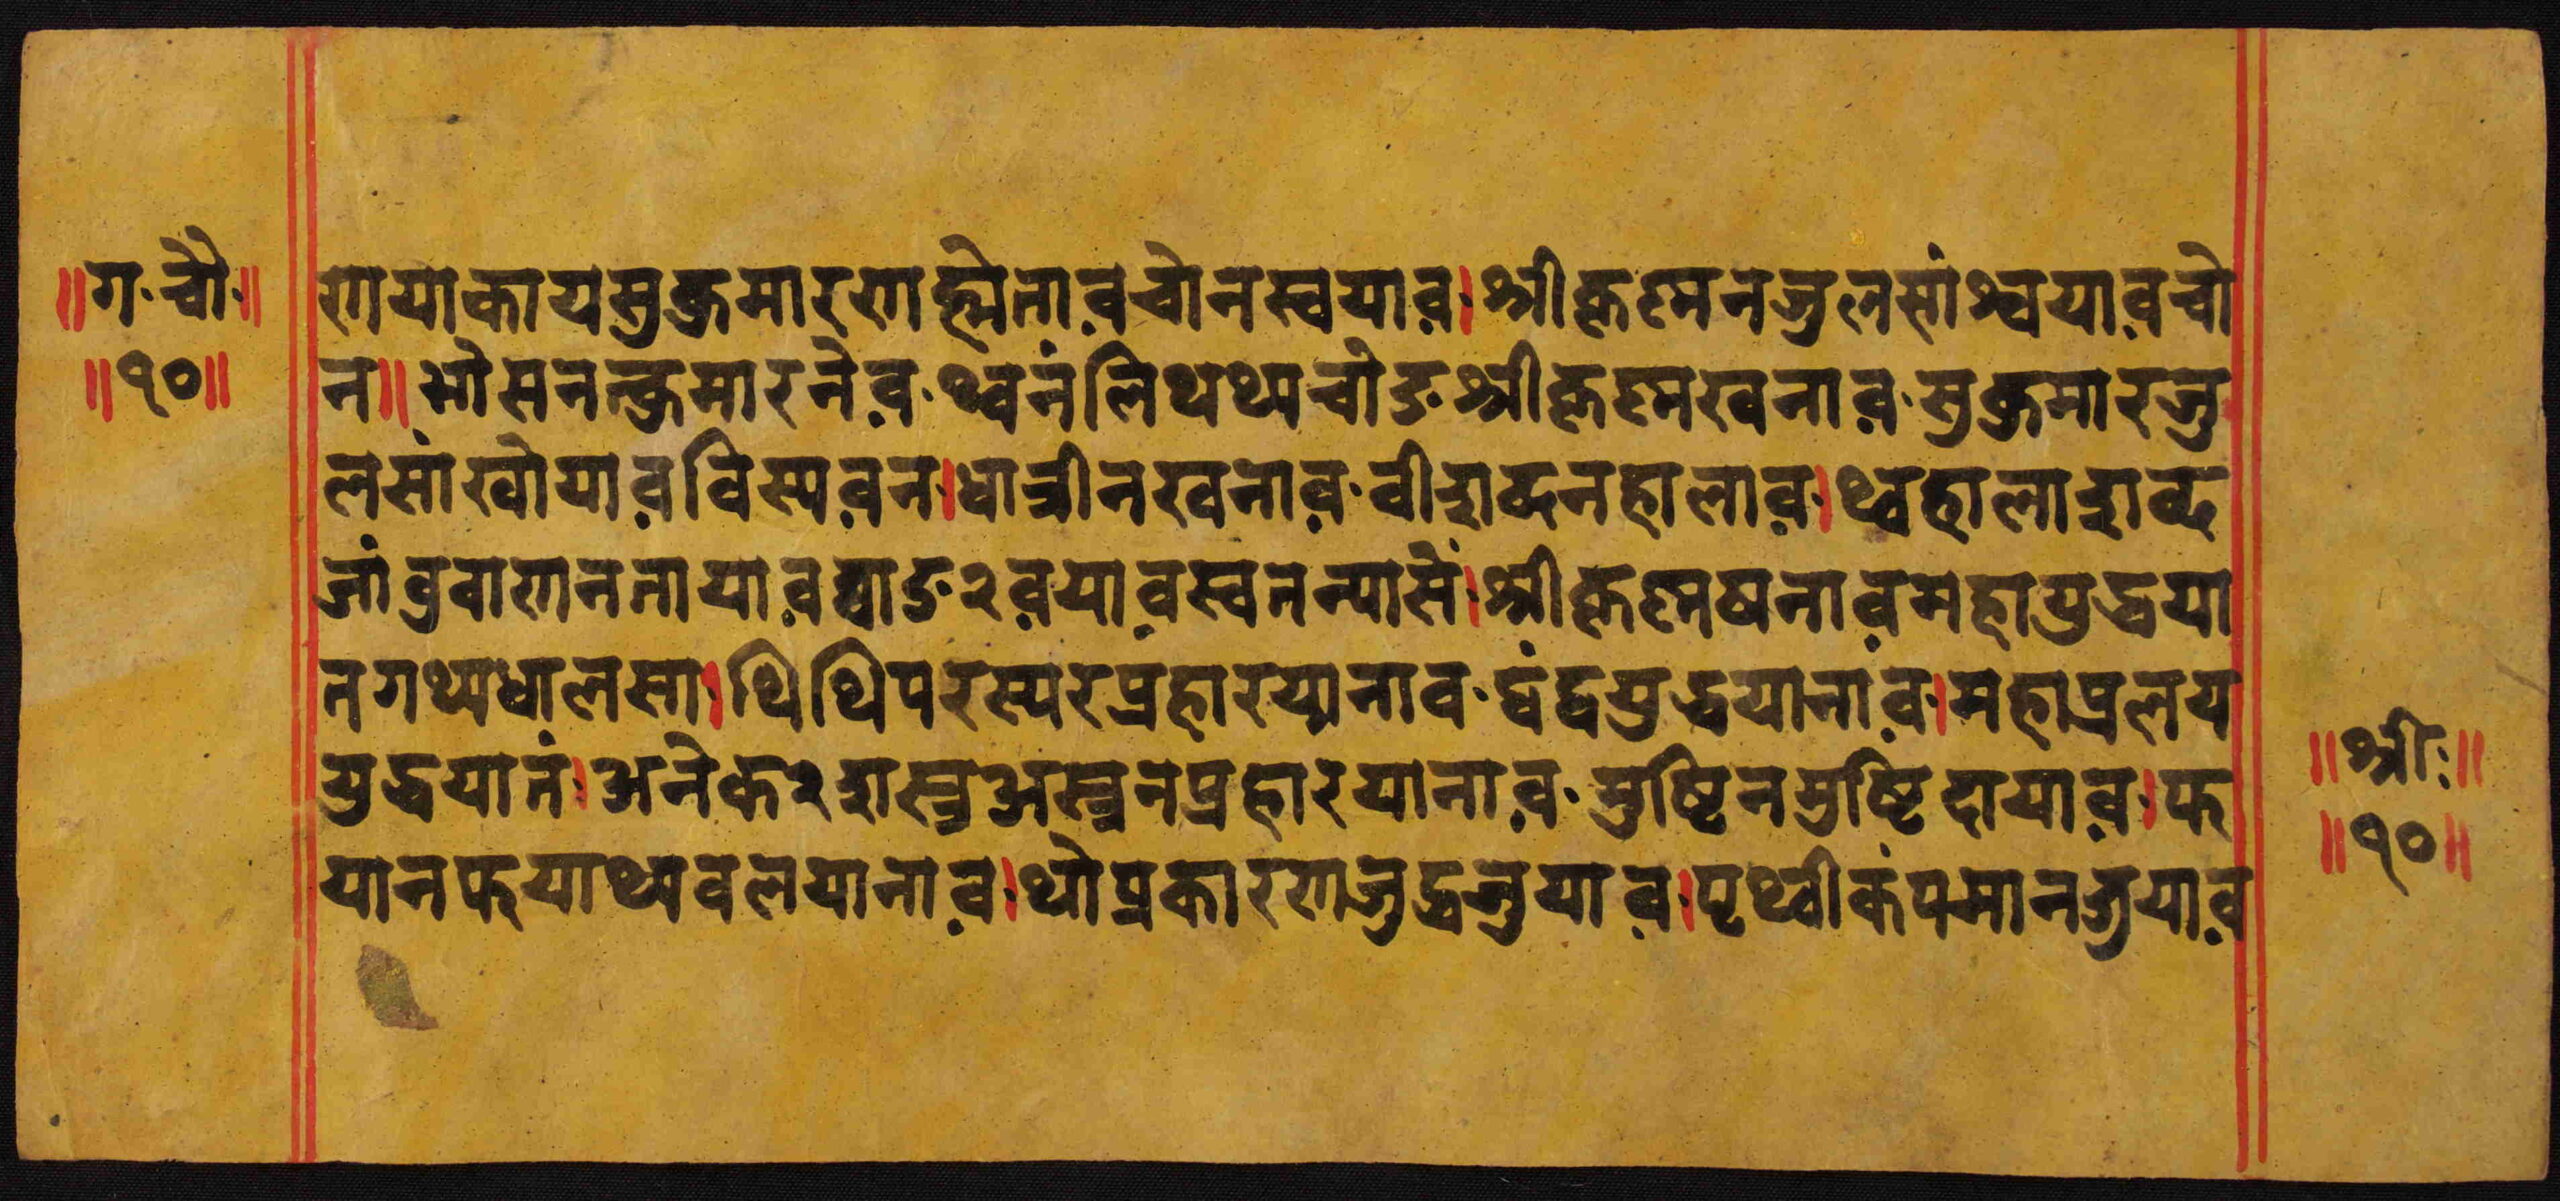 ॥ग·चौ·॥
॥१०॥
णयाकायमुक्रमारणह्मेतावचोनस्वयाव।श्रीकृष्मनजुलसांश्वयावचो
न॥भोसनन्क्रमारनेव·थ्वनंलिथथ्यचोङश्रीकृष्मखनाव·मुक्रमारजु
लसांखोयावविस्यवन।धात्रीनखनाव·वीशब्दनहालाव।थ्वहालाशब्द
जांवुवाणनतायावब्वाङ२वयावस्वतन्यासें।श्रीकृष्मषनावमहायुद्धया
नगथ्यधालसा।थिथिपरस्परप्रहारयानाव·द्वंद्वयुद्धयानाव।महाप्रलय
युद्धयानं।अनेक२शस्त्रअस्त्रनप्रहारयानाव·मुष्टिनमुष्टिदायाव।फ
यानफयाथ्यवलयानाव।थोप्रकारणजुद्धजुयाव।पृथ्वीकंपमानजुयाव
॥श्रीः॥
॥१०॥